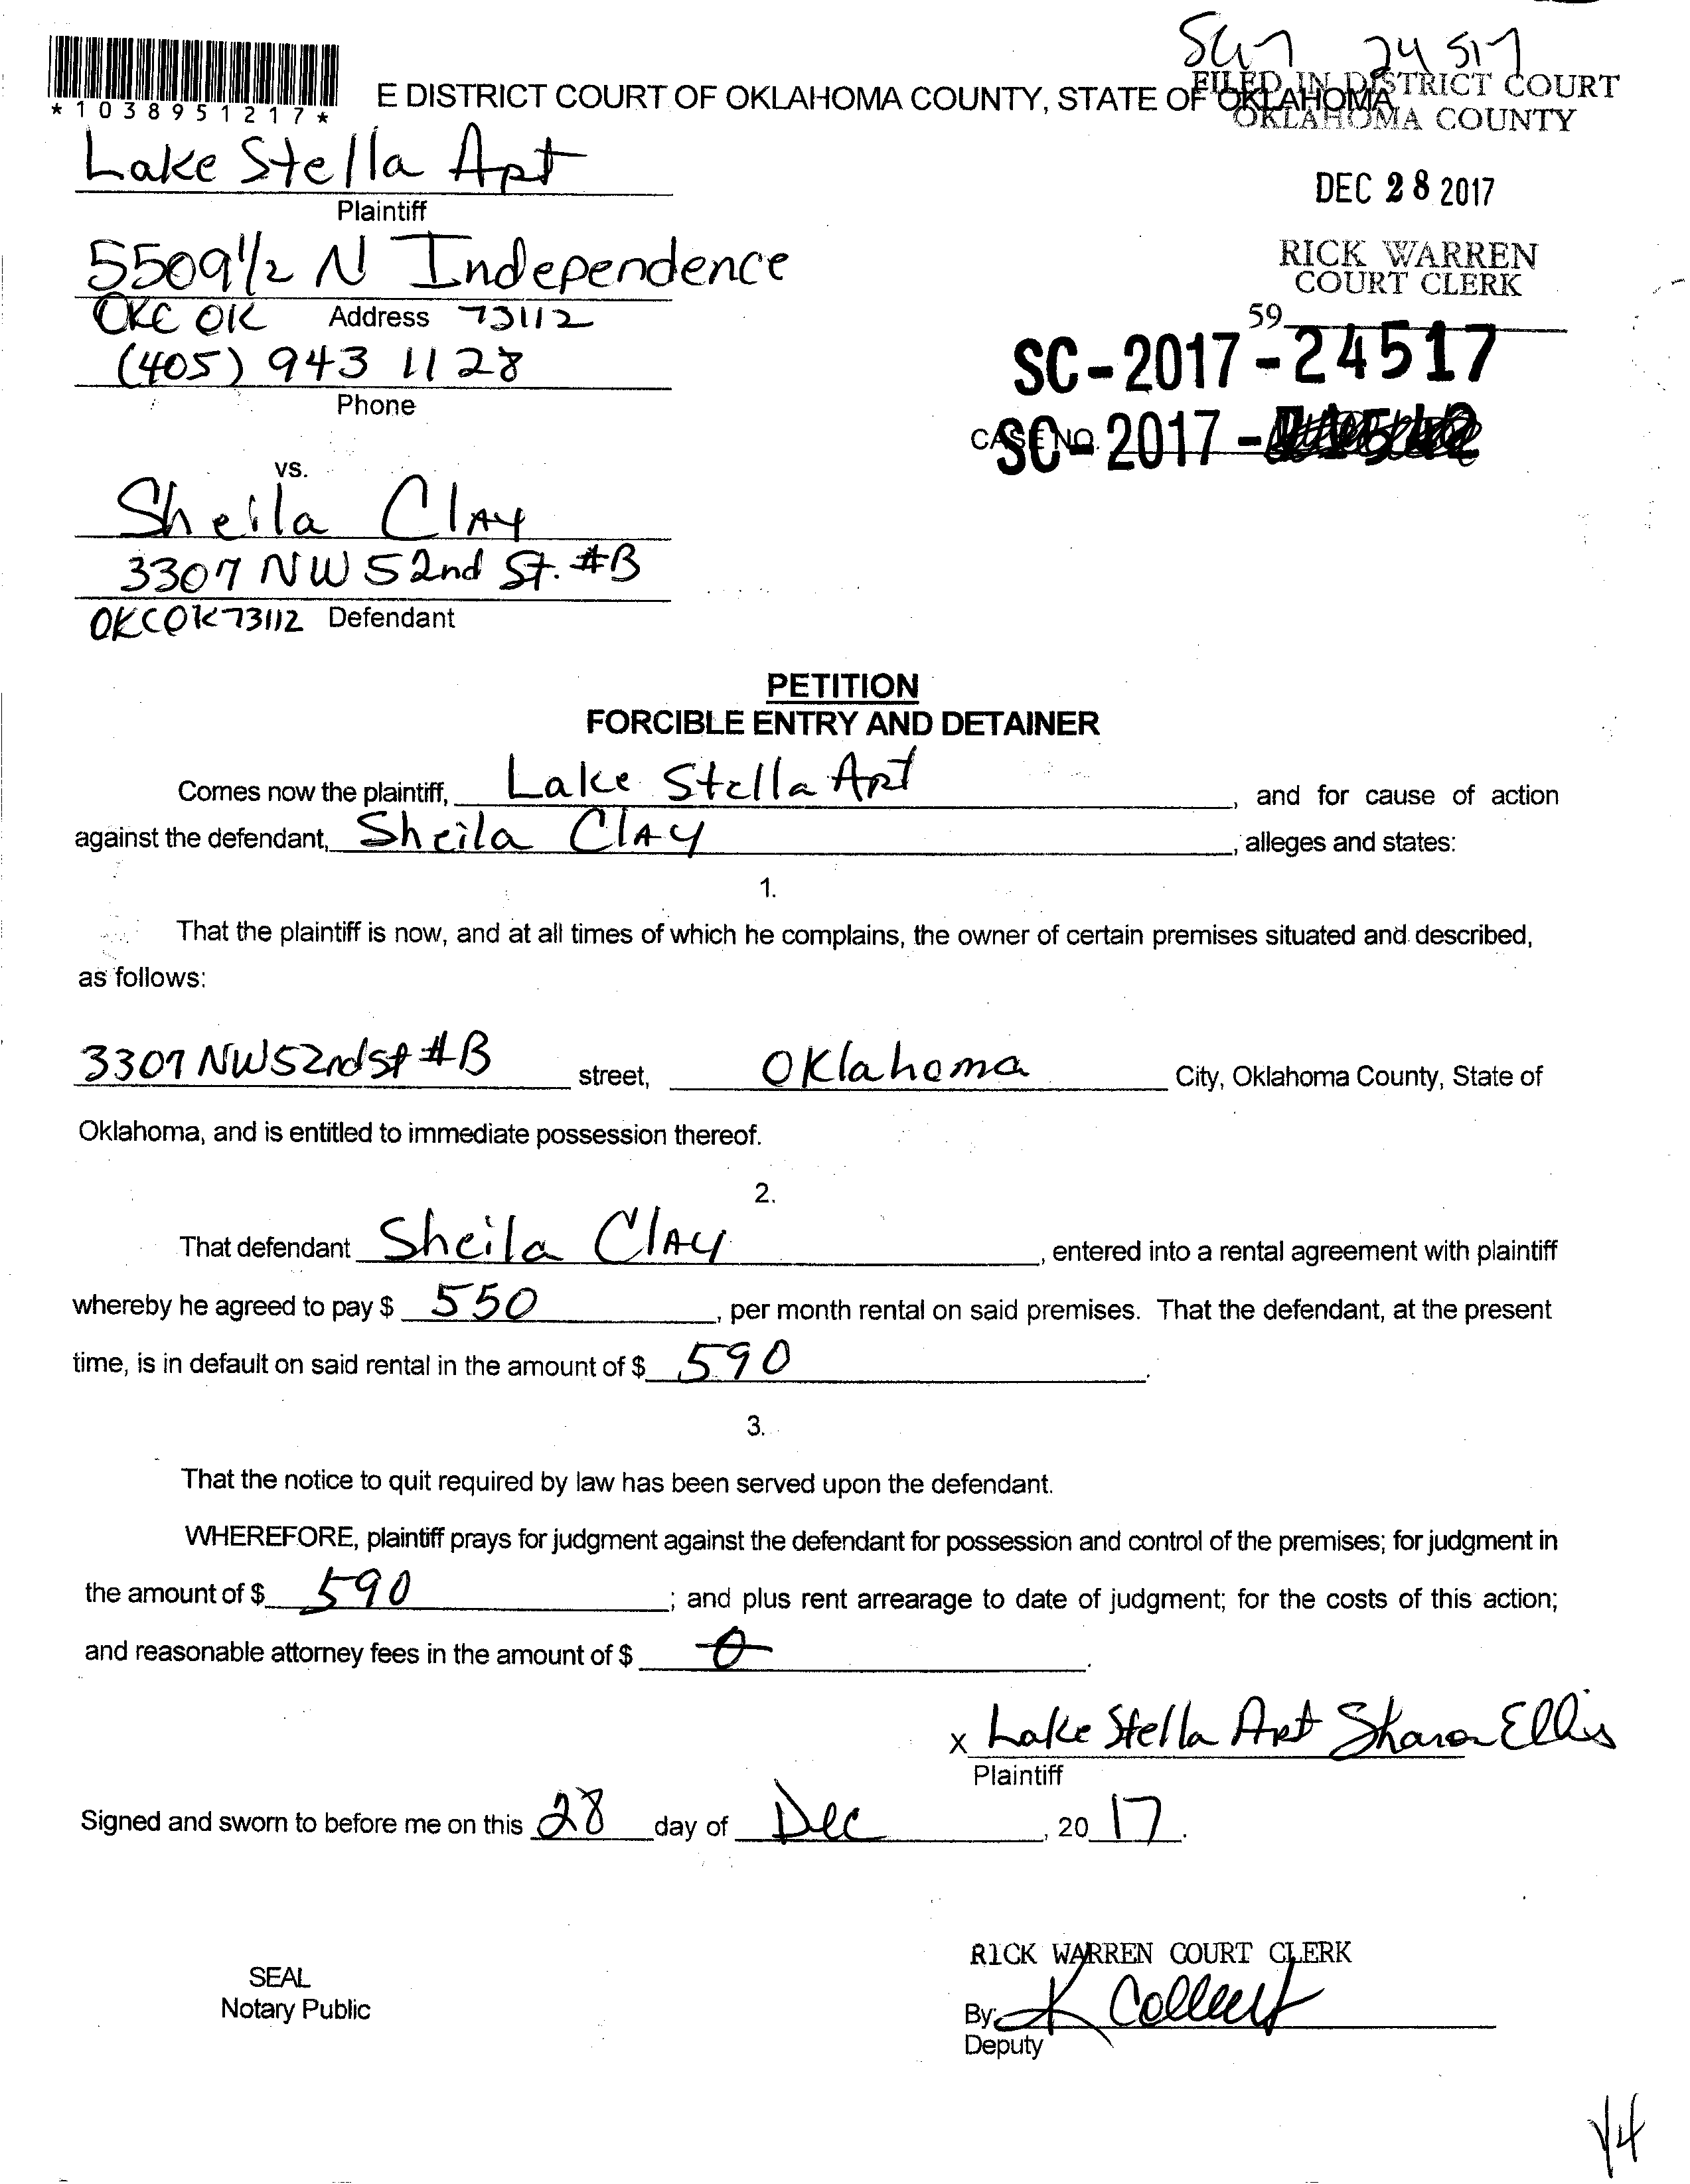 SC17 24517
*1038951217*
E DISTRICT COURT OF OKLAHOMA COUNTY, STATE OF OKLAHOMA
FILED IN DISTRICT COURT
OKLAHOMA COUNTY
Lake Stella Apt
Plaintiff
DEC 28 2017
5509 1/2 N Independence
RICK WARREN
COURT CLERK
OKC OK Address 73112
59
(405) 943 1128
Phone
SC-2017-24517
CASE NO.
SC-2017-
vs.
Sheila Clay
3307 NW 52nd St. #B
OKC OK 73112 Defendant
PETITION
FORCIBLE ENTRY AND DETAINER
Comes now the plaintiff, Lake Stella Apt, and for cause of action
against the defendant, Sheila Clay, alleges and states:
1.
That the plaintiff is now, and at all times of which he complains, the owner of certain premises situated and described,
as follows:
3307 NW 52nd St #B street, Oklahoma City, Oklahoma County, State of
Oklahoma, and is entitled to immediate possession thereof.
2.
That defendant Sheila Clay, entered into a rental agreement with plaintiff
whereby he agreed to pay $ 550, per month rental on said premises. That the defendant, at the present
time, is in default on said rental in the amount of $ 590.
3.
That the notice to quit required by law has been served upon the defendant.
WHEREFORE, plaintiff prays for judgment against the defendant for possession and control of the premises; for judgment in
the amount of $ 590; and plus rent arrearage to date of judgment; for the costs of this action;
and reasonable attorney fees in the amount of $ 0.
x Lake Stella Apt Sharon Ellis
Plaintiff
Signed and sworn to before me on this 28 day of Dec, 2017.
RICK WARREN COURT CLERK
SEAL
Notary Public
By: K
Deputy